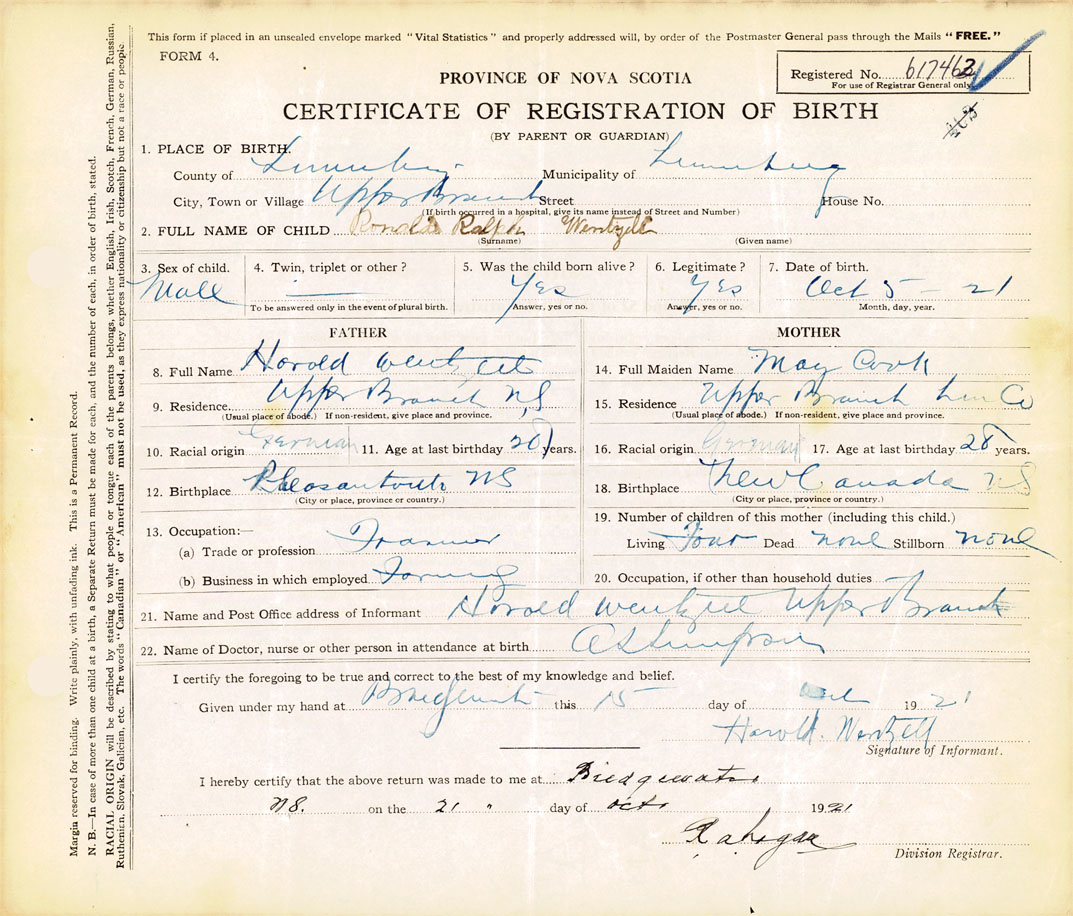 This form if placed in an unsealed envelope marked "Vital Statistics" and properly addressed will, by order of the Postmaster General pass through the Mails "FREE."
FORM 4.
Registered No. 617463
For use of Registrar General only
PROVINCE OF NOVA SCOTIA
CERTIFICATE OF REGISTRATION OF BIRTH
(BY PARENT OR GUARDIAN)
1. PLACE OF BIRTH.
County of Lunenburg Municipality of Lunenburg
City, Town or Village Upper Branch Street House No.
(If birth occurred in a hospital, give its name instead of Street and Number)
2. FULL NAME OF CHILD Ronald Ralph Wentzell
(Surname) (Given name)
3. Sex of child. 4. Twin, triplet or other? 5. Was the child born alive? 6. Legitimate? 7. Date of birth.
Male — Yes Yes Oct 5 - 21
To be answered only in the event of plural birth. Answer, yes or no. Answer, yes or no. Month, day, year.
FATHER
8. Full Name Harold Wentzell
9. Residence Upper Branch NS
(Usual place of abode.) If non-resident, give place and province.
10. Racial origin German 11. Age at last birthday 20 years.
12. Birthplace NS
(City or place, province or country.)
13. Occupation:—
(a) Trade or profession
(b) Business in which employed Farming
MOTHER
14. Full Maiden Name May Cook
15. Residence Upper Branch Lun Co
(Usual place of abode.) If non-resident, give place and province.
16. Racial origin German 17. Age at last birthday 28 years.
18. Birthplace New Canada NS
(City or place, province or country.)
19. Number of children of this mother (including this child.)
Living Four Dead none Stillborn none
20. Occupation, if other than household duties
21. Name and Post Office address of Informant Harold Wentzell Upper Branch
22. Name of Doctor, nurse or other person in attendance at birth
I certify the foregoing to be true and correct to the best of my knowledge and belief.
Given under my hand at this 15 day of 1921
Harold Wentzell
Signature of Informant.
I hereby certify that the above return was made to me at Bridgewater
NS. on the 21 " day of Oct 1921
Division Registrar.
Margia reserved for binding. Write plainly, with unfading ink. This is a Permanent Record.
N. B.—In case of more than one child at a birth, a Separate Return must be made for each, and the number of each, in order of birth, stated.
RACIAL ORIGIN will be described by stating to what people or tongue each of the parents belongs, whether English, Irish, Scotch, French, German, Russian,
Ruthenian, Slovak, Galician, etc. The words "Canadian" or "American" must not be used, as they express nationality or citizenship but not a race or people.